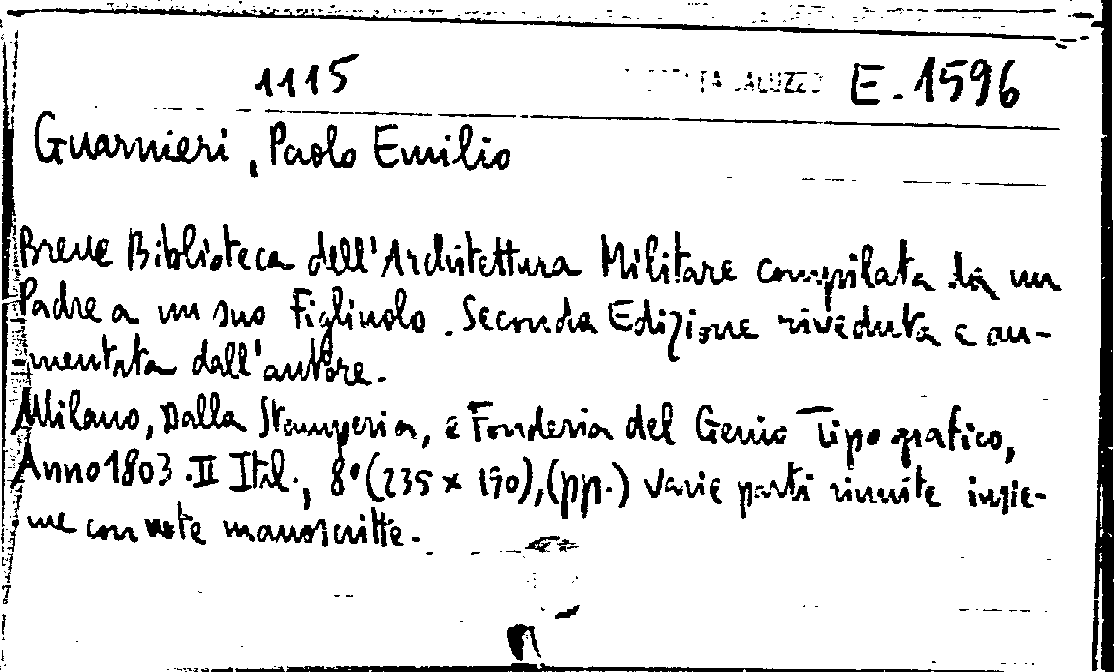 1115 SALUZZO E. 1596
Guarnieri, Paolo Emilio
Breve Biblioteca dell'Architettura Militare compilata da un
Padre a un suo Figliuolo. Seconda Edizione riveduta e au-
mentata dall'autore.
Milano, Dalla Stamperia, e Fonderia del Genio Tipografico,
Anno 1803. II Ital., 8° (235 x 190), (pp.) varie parti riunite insie-
me con note manoscritte.